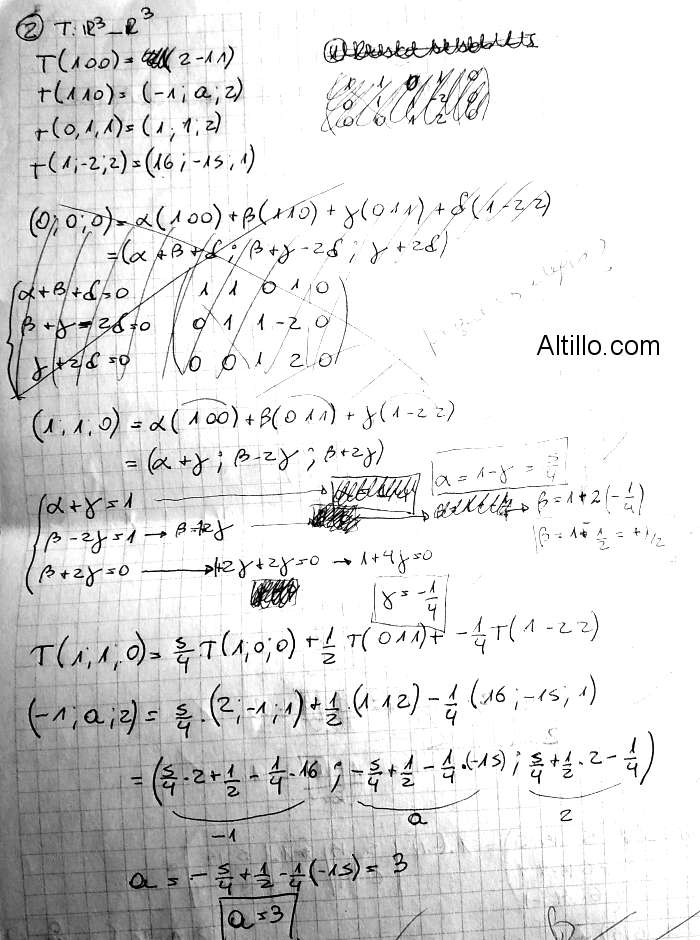 ② T: ℝ³ – ℝ³
T(100) = (2-11)
T(110) = (-1; a; 2)
T(0,1,1) = (1; 1; 2)
T(1;-2;2) = (16; -15, 1)
(0; 0; 0) = α(100) + β(110) + γ(011) + δ(1-22)
= (α+β+δ; β+γ-2δ; γ+2δ)
α+β+δ=0 1 1 0 1 0
β+γ-2δ=0 0 1 1 -2 0
γ+2δ=0 0 0 1 2 0
Altillo.com
(1, 1, 0) = α(100) + β(011) + γ(1-22)
= (α+γ; β-2γ; β+2γ)
α = 1-γ = 5/4
α+γ=1
β-2γ=1 → β=1+2γ → β=1+2(-1/4)
β=1-1/2=+1/2
β+2γ=0 → 1+2γ+2γ=0 → 1+4γ=0
γ = -1/4
T(1;1;0) = 5/4 T(1,0;0) + 1/2 T(011) + -1/4 T(1-22)
(-1; a; 2) = 5/4 . (2; -1; 1) + 1/2 . (112) - 1/4 (16; -15; 1)
= (5/4 . 2 + 1/2 - 1/4 . 16 ; -5/4 + 1/2 - 1/4 . (-15) ; 5/4 + 1/2 . 2 - 1/4)
-1 a 2
a = -5/4 + 1/2 - 1/4 (-15) = 3
a=3